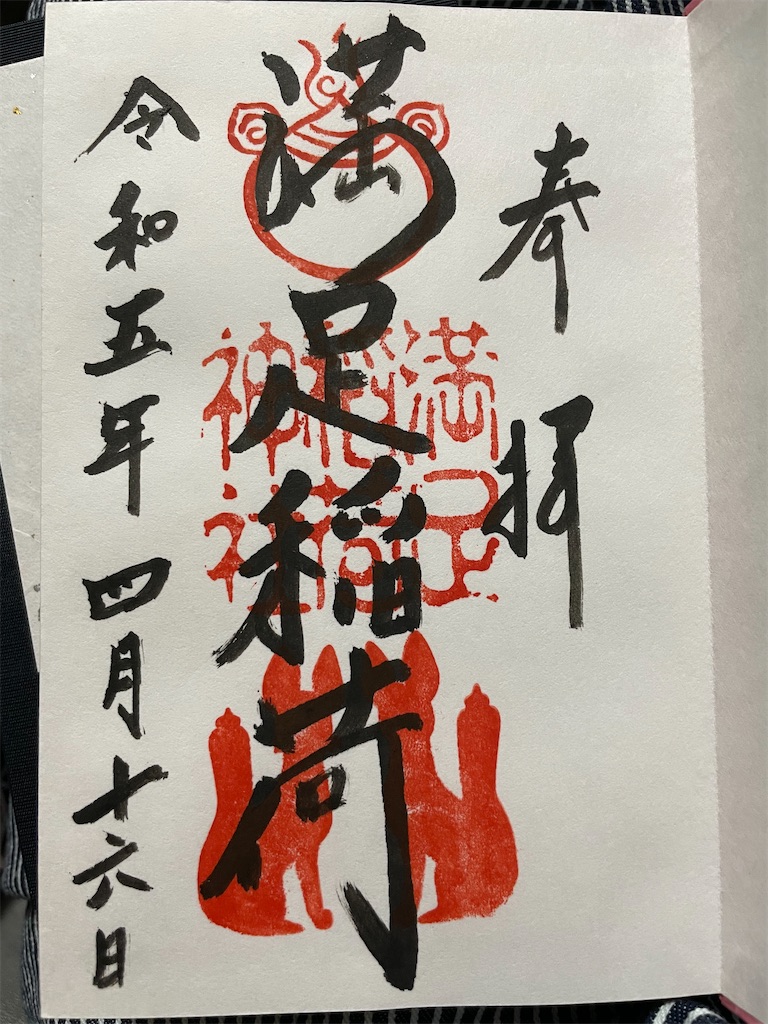 奉拝
満足稲荷
満足
稲荷
神社
令和五年四月十六日